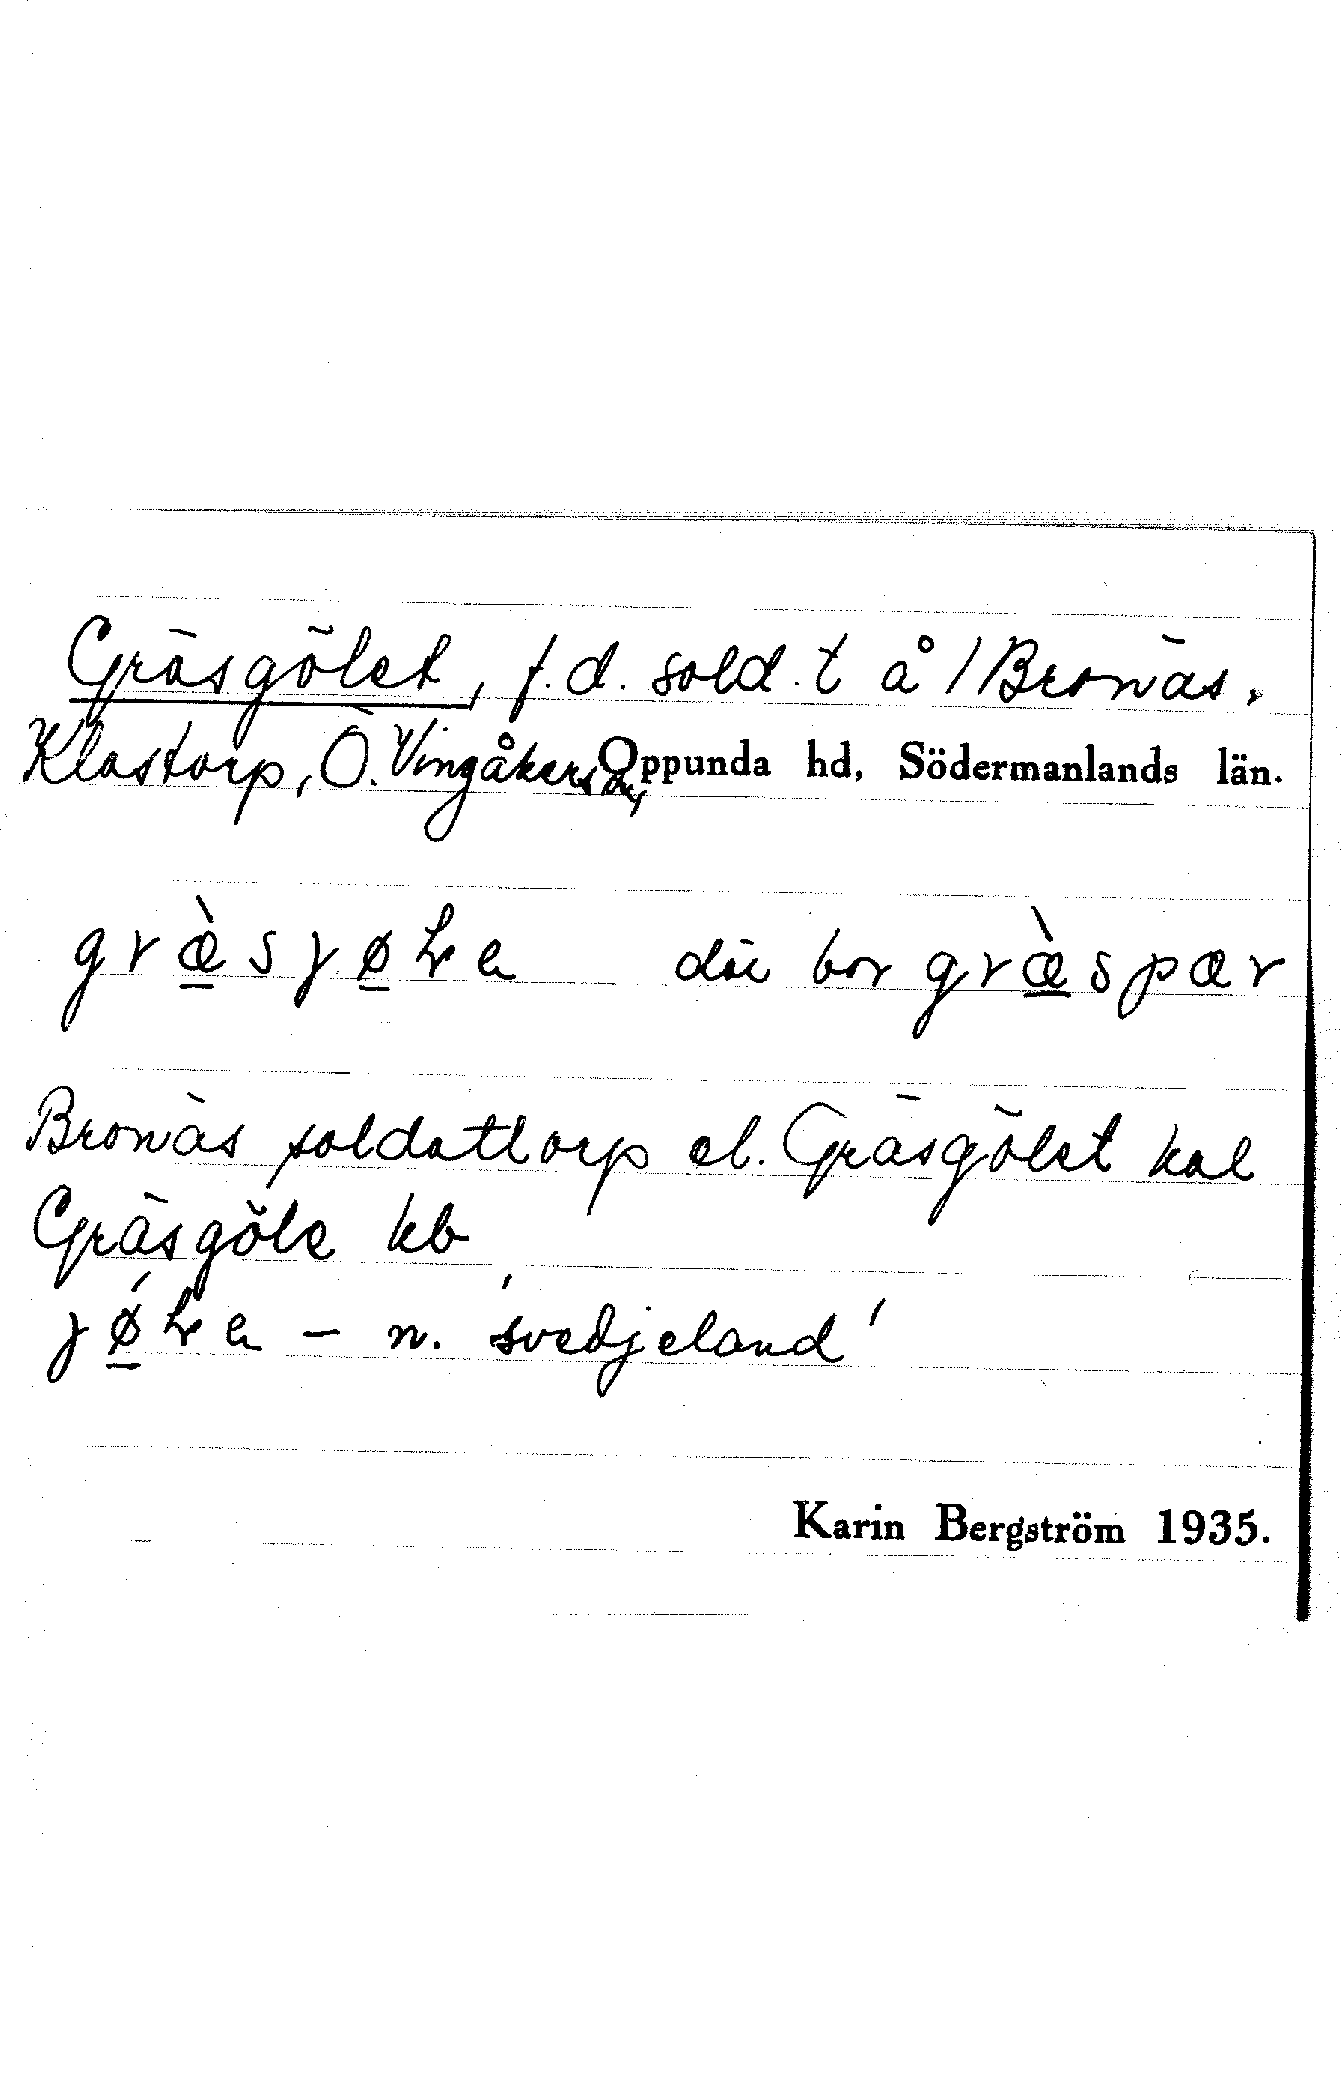 Gräsgölet, f.d. sold. t å /Bronäs,
Klastorp, Ö. Vingåkers sn, Oppunda hd, Södermanlands län.
græ̀sjøłe där bor græ̀spær
Bronäs soldattorp el. Gräsgölet kal
Gräsgöle kb
jǿłe – n. 'svedjeland'
Karin Bergström 1935.